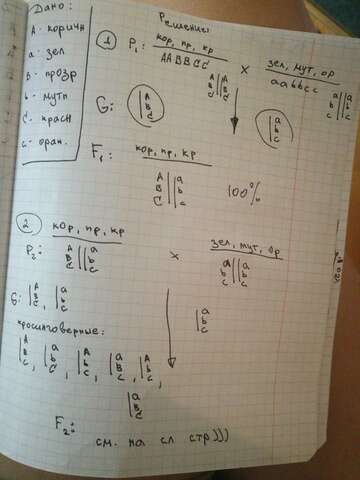 Дано:
А - коричн
а - зел
В - прозр
b - мутн
С - красн
с - оран.
Решение:
1 P₁: кор, пр, кр
ААВВСС
A B C || A B C
×
зел, мут, ор
ааbbcc
a b c || a b c
G: | A B C
| a b c
F₁: кор, пр, кр
A B C || a b c
100%
2 кор, пр, кр
P₂: A B C || a b c
×
зел, мут, ор
a b c || a b c
G: | A B C, | a b c
| a b c
кросинговерные:
| A B c, | a b C, | A b c, | a B C, | A b c,
| a B C
F₂:
см. на сл стр)))